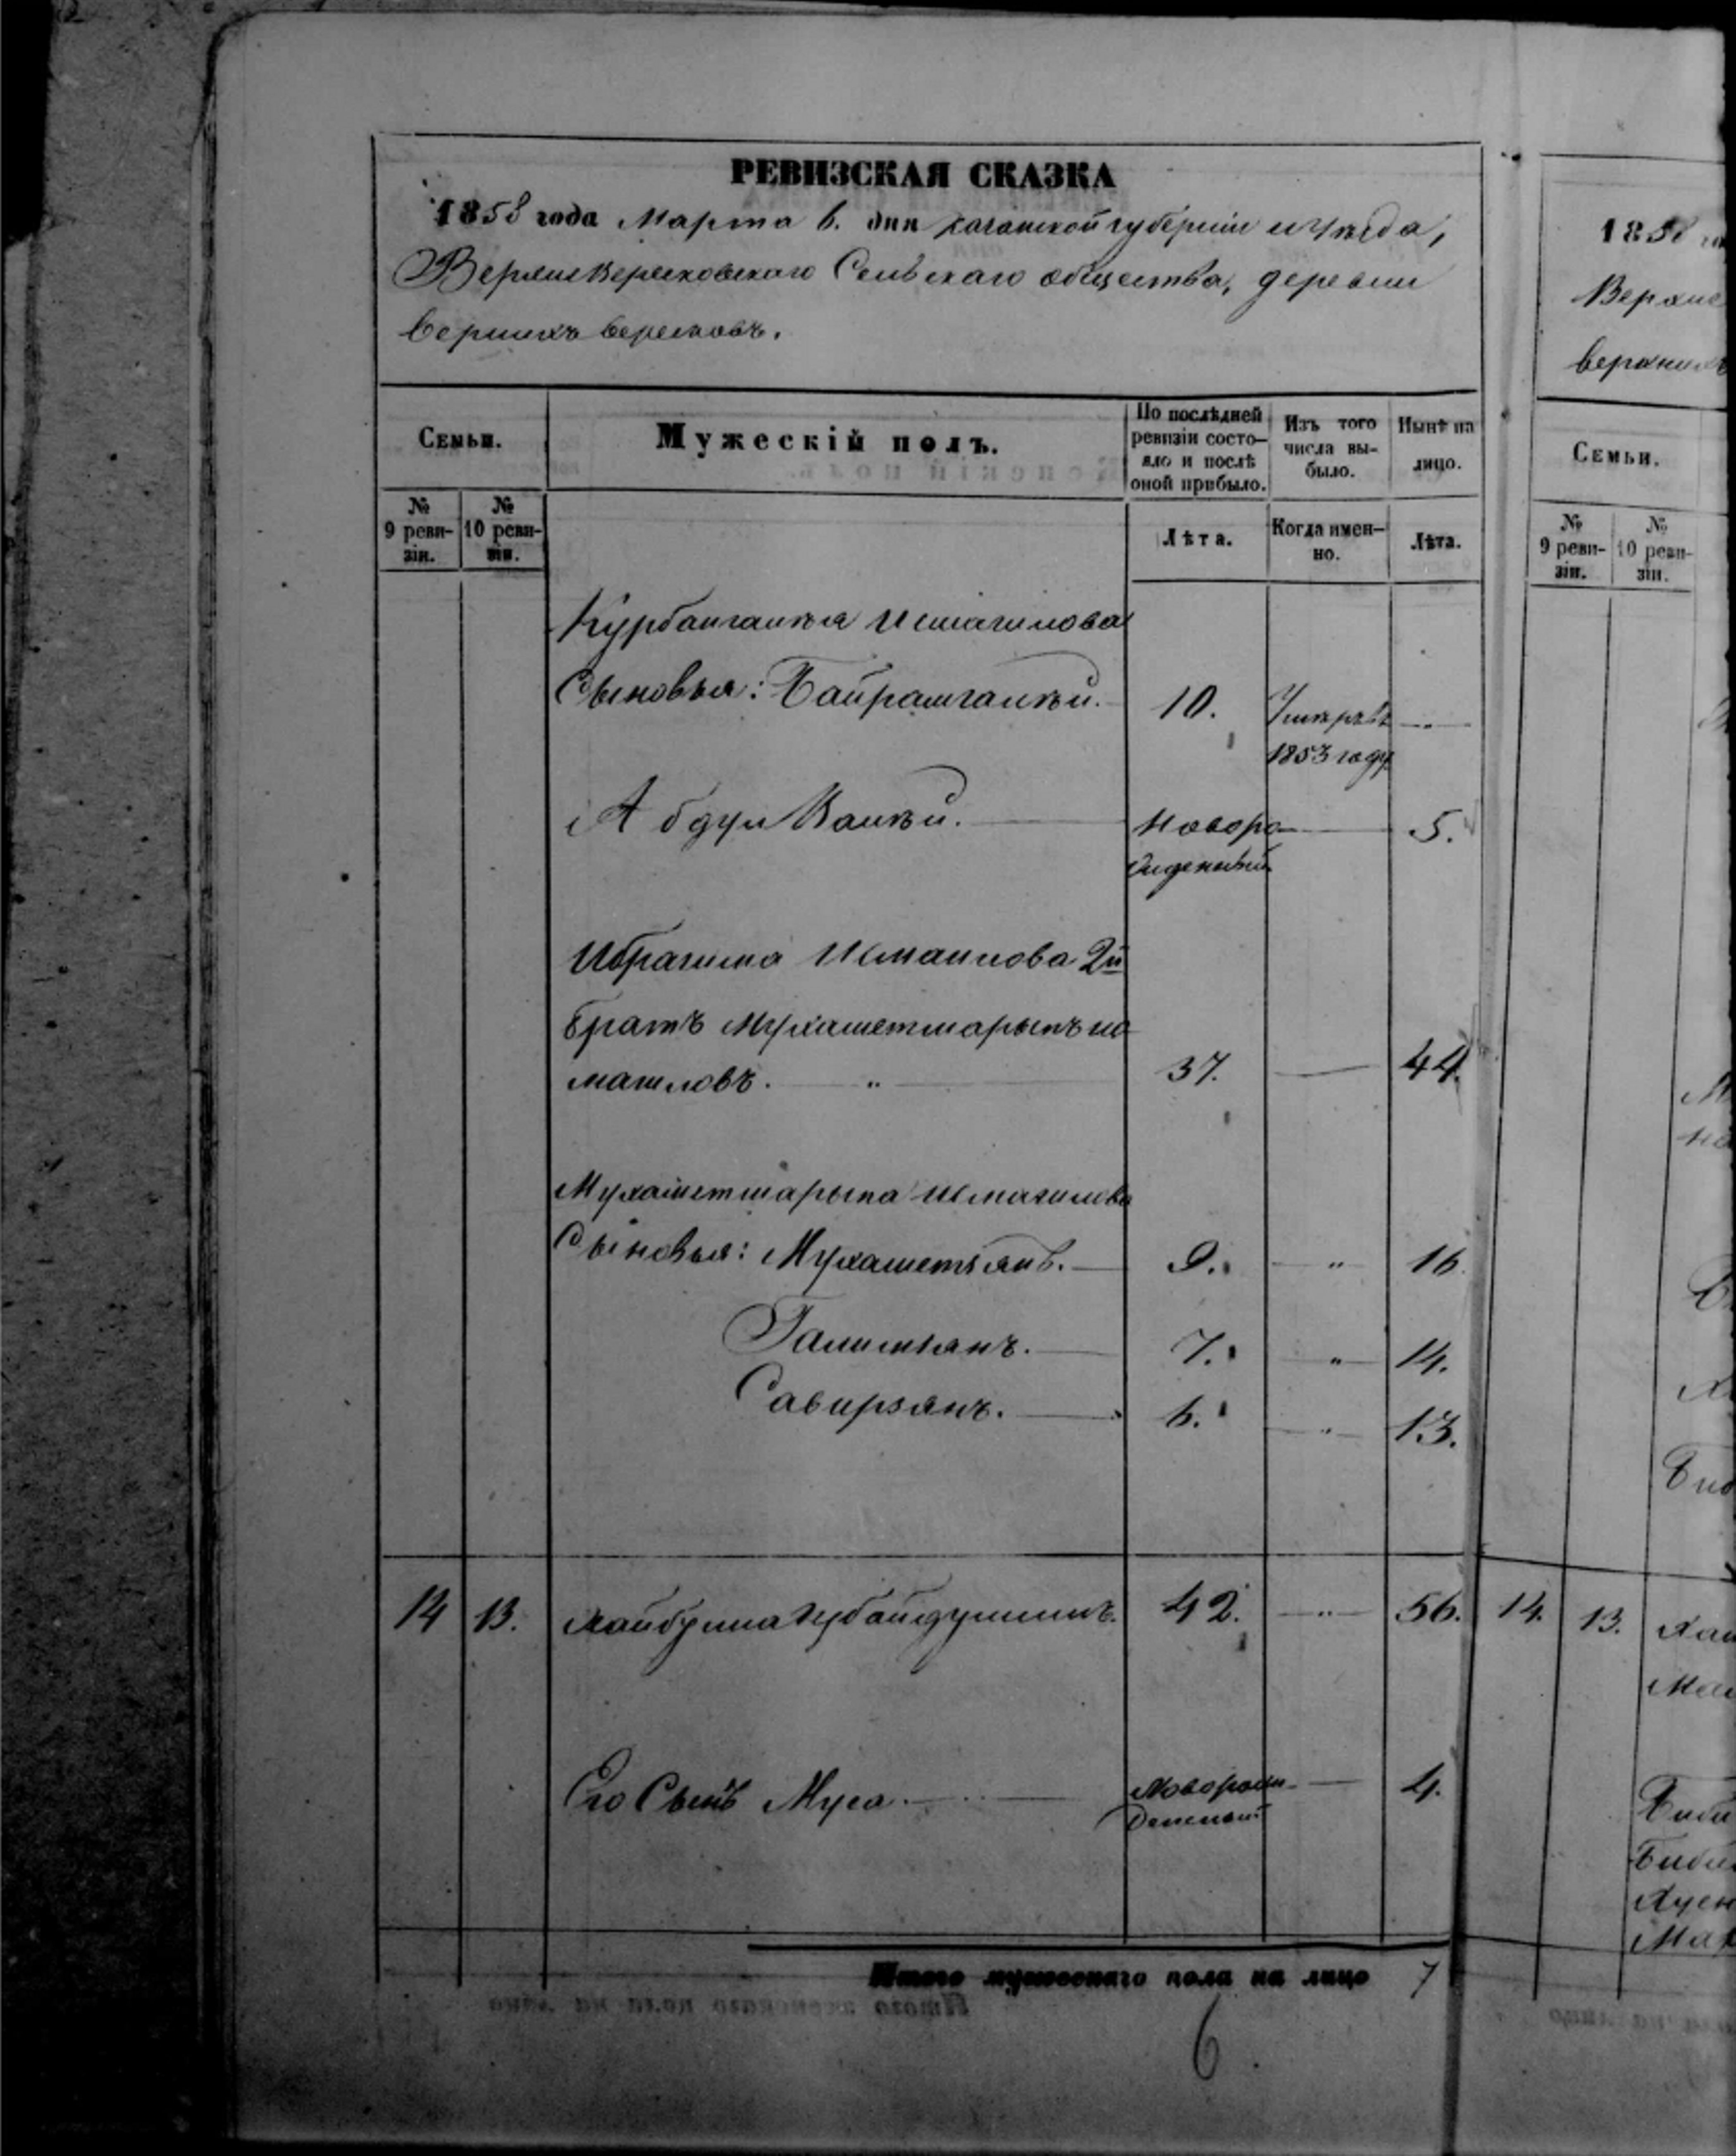 РЕВИЗСКАЯ СКАЗКА
1858 года Марта 6. дня Казанской губерніи и уѣзда,
Верхневересковскаго Сельскаго общества, деревни
Верхнихъ Вересковъ.
Семьи.
Мужескій полъ.
По послѣдней ревизіи состо-
яло и послѣ оной прибыло.
Изъ того числа вы-
было.
Нынѣ на лицо.
№ 9 реви-
зіи.
№ 10 реви-
зіи.
Лѣта.
Когда имен-
но.
Лѣта.
Курбангалѣя Исмагилова
Сыновья: Байрамгалѣй. 10. Умеръ въ
1853 году
Абдул Валѣй. Новоро- 5.
жденный
Ибрагима Исмаилова 2й
братъ Мухаметшарыпъ Ис
магиловъ. " 37. 44.
Мухаметшарыпа Исмагилова
Сыновья: Мухаметзянъ. 9. " 16
Галимзянъ. 7. " 14.
Савирзянъ. 6. " 13.
14 13. 42. " 56.
Его Сынъ Муса. Новорож- 4.
денный
Итого мужескаго пола на лицо 7
6
1858
Верхне
Верхнихъ
Семьи.
№ 9 реви-
зіи.
№ 10 реви-
зіи.
14. 13.